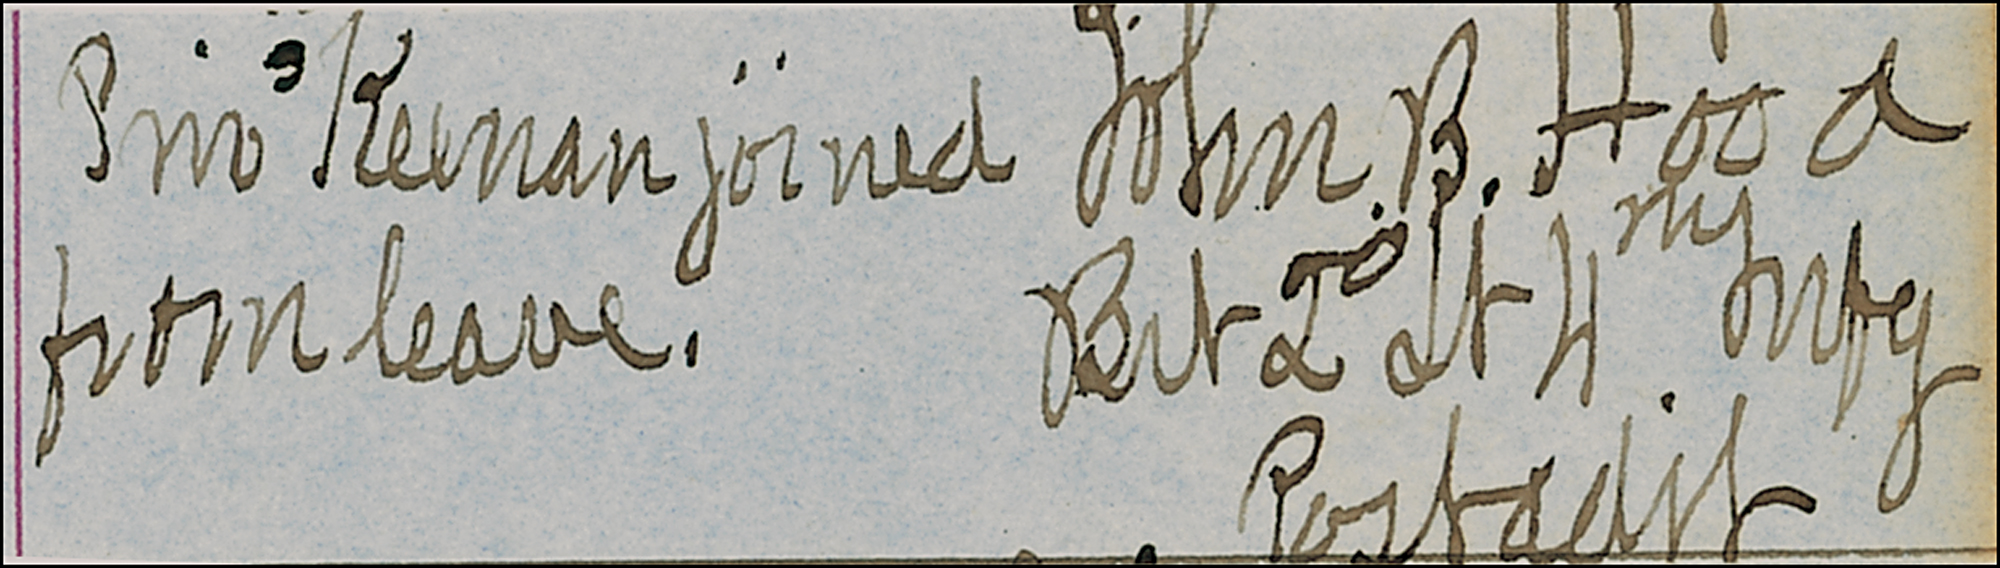 Priv Keenan joined
from leave.
John B. Hood
Bvt 2d Lt 4 Infy
Post adjt